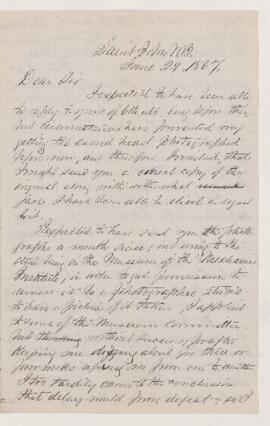 Saint John N.B.
June 29, 1867.
Dear Sir
I expected to have been able
to reply to yours of 6th ult. long before this,
but circumstances have prevented my
getting the carved head photographed
before now, and therefore that
I might send you a correct copy of the
original along with what
facts I have been able to elicit in regard
to it.
I expected to have sent you the photo-
graphs a month since; but owing to the
stone being in the Museum of the Mechanics
Institute, in order to get permission to
remove it to a photographic studio
to have a picture of it taken, I applied
to some of the Museum Committee,
but without success, for after
keeping me about for three or
four weeks me from one to another,
I to the conclusion
that delay would prove defeat &